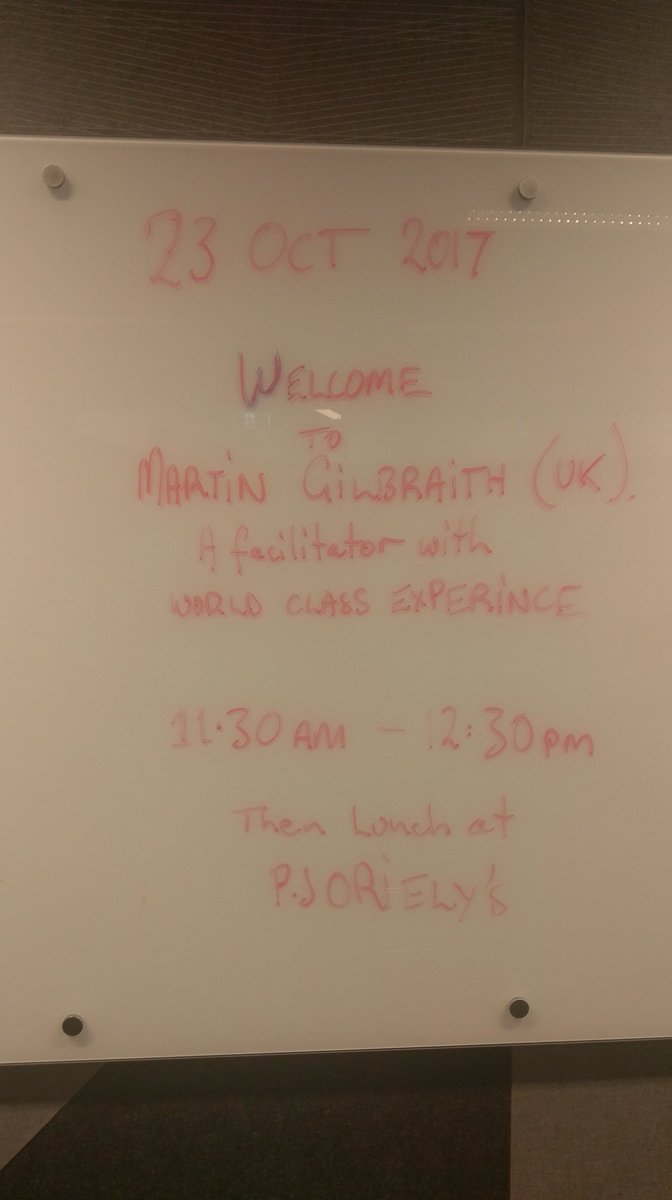 23 OCT 2017
WELCOME
TO
MARTiN GiLBRAiTH (UK).
A facilitator with
WORLD CLASS EXPERINCE
11.30 AM – 12:30 pm
Then Lunch at
P.J ORiELY's